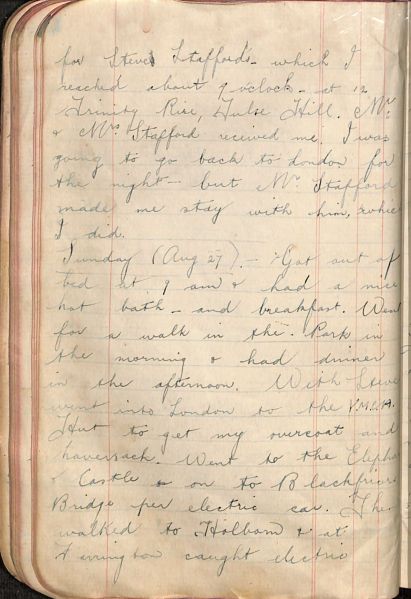 for Steve Stafford's - which I
reached about 9 o'clock - at 12
Trinity Rise, Tulse Hill. Mr
& Mrs Stafford received me. I was
going to go back to London for
the night - but Mr Stafford
made me stay with him, which
I did.
Sunday (Aug 27). - Got out of
bed at 9 am & had a nice
hot bath - and breakfast. Went
for a walk in the Park in
the morning & had dinner
in the afternoon. With Steve
went into London to the Y.M.C.A.
Hut to get my overcoat and
haversack. Went to the Elepha
& Castle & on to Blackfriars
Bridge per electric car. The
walked to Holborn & at
Farringdon caught electric